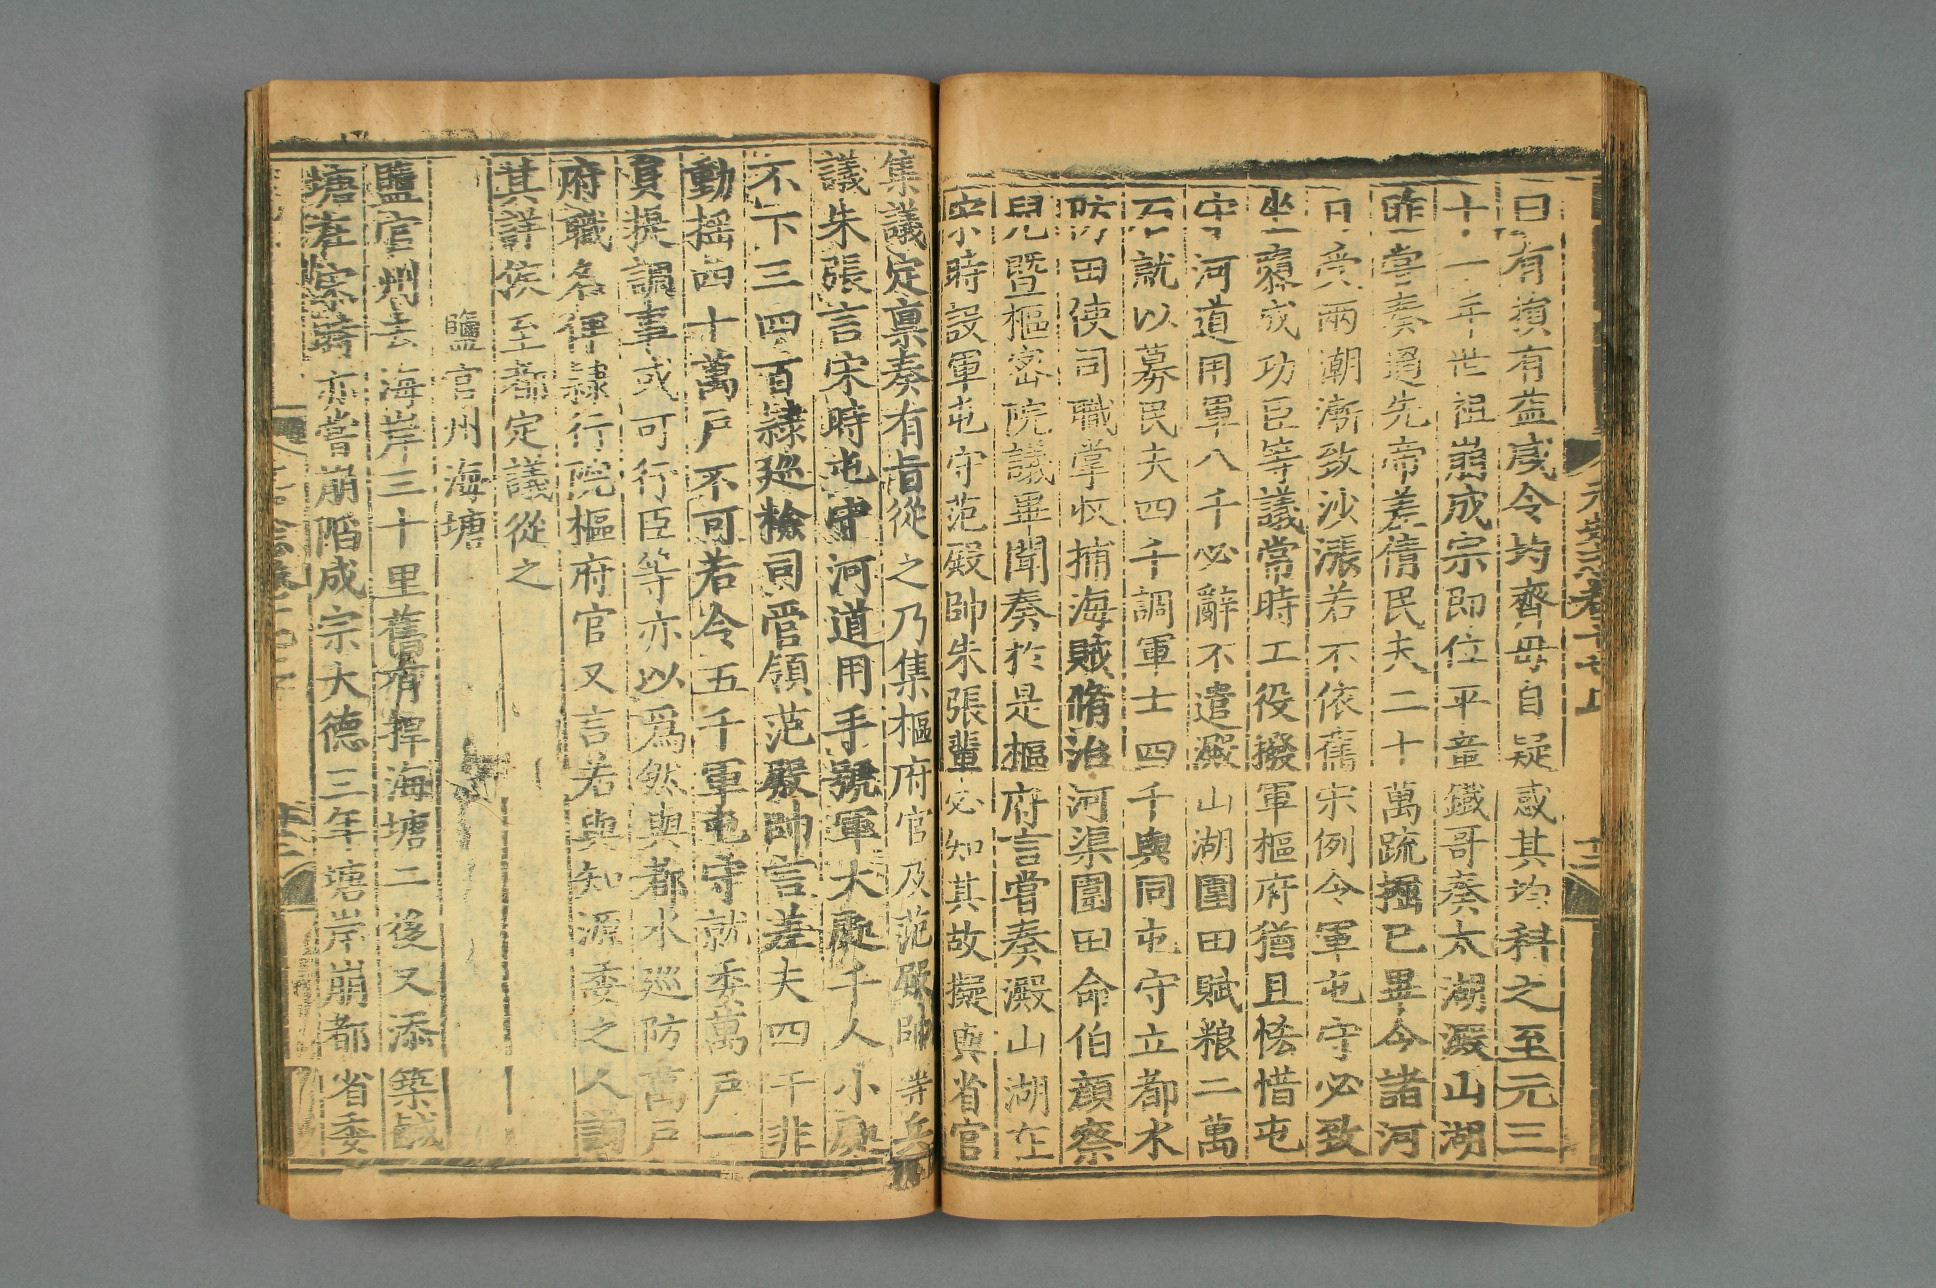 曰有損有益咸令均齊毋自疑惑其均科之至元三
十一年世祖崩成宗即位平章鐵哥奏太湖澱山湖
昨嘗奏過先帝差倩民夫二十萬疏掘已畢今諸河
日受兩潮漸致沙漲若不依舊宋例令軍屯守必致
坐隳成功臣等議常時工役撥軍樞府猶且恡惜屯
守河道用軍八千必辭不遣澱山湖圍田賦糧二萬
石就以募民夫四千調軍士四千與同屯守立都水
防田使司職掌收捕海賊脩治河渠圍田命伯顏察
兒暨樞密院議畢聞奏於是樞府言嘗奏澱山湖在
宋時設軍屯守范殿帥朱張輩必知其故擬與省官
集議定禀奏有旨從之乃集樞府官及范殿帥等共
議朱張言宋時屯守河道用手號軍大處千人小處
不下三四百隸巡檢司管領范殿帥言差夫四千非
動搖四十萬戶不可若令五千軍屯守就委萬戶一
員提調事或可行臣等亦以爲然與都水巡防萬戶
府職名俾隸行院樞府官又言若與知源委之人詢
其詳俟至都定議從之
鹽官州海塘
鹽官州去海岸三十里舊有捍海塘二後又添築鹹
塘在宋時亦嘗崩陷成宗大德三年塘岸崩都省委